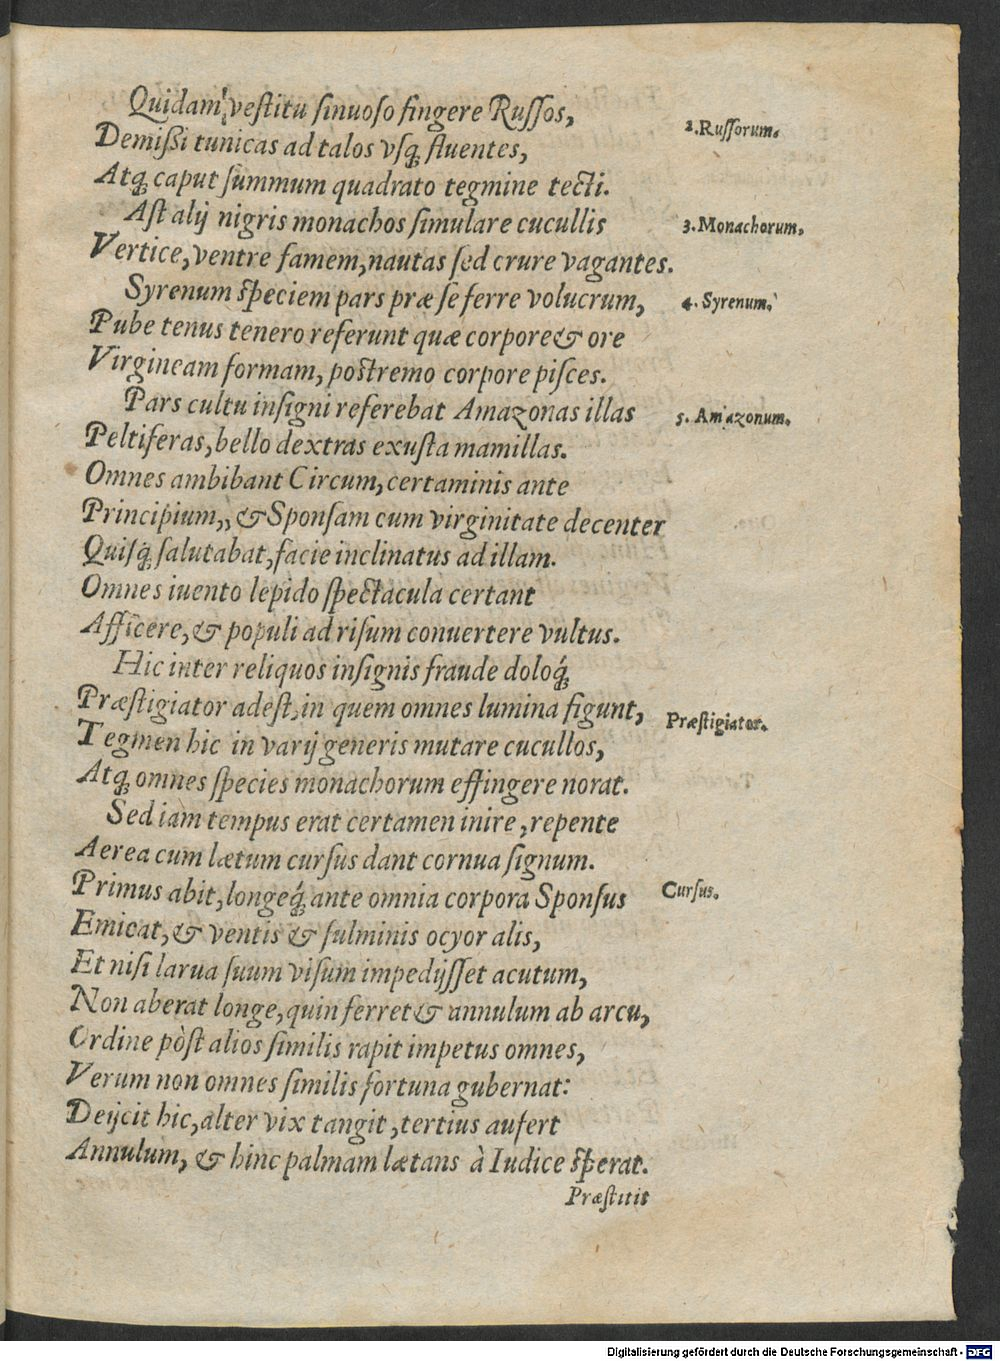 Quidam veſtitu ſinuoſo fingere Ruſſos,
2. Ruſſorum.
Demißi tunicas ad talos vſq́; fluentes,
Atq́; caput ſummum quadrato tegmine tecti.
Aſt alij nigris monachos ſimulare cucullis
3. Monachorum.
Vertice, ventre famem, nautas ſed crure vagantes.
Syrenum ſpeciem pars præ ſe ferre volucrum,
4. Syrenum.
Pube tenus tenero referunt quæ corpore & ore
Virgineam formam, poſtremo corpore piſces.
Pars cultu inſigni referebat Amazonas illas
5. Amazonum.
Peltiferas, bello dextras exuſta mamillas.
Omnes ambibant Circum, certaminis ante
Principium,, & Sponſam cum virginitate decenter
Quiſq́; ſalutabat, facie inclinatus ad illam.
Omnes iuento lepido ſpectacula certant
Afficere, & populi ad riſum conuertere vultus.
Hic inter reliquos inſignis fraude doloq́;
Præſtigiator adeſt, in quem omnes lumina figunt,
Præſtigiator.
Tegmen hic in varij generis mutare cucullos,
Atq́; omnes ſpecies monachorum effingere norat.
Sed iam tempus erat certamen inire, repente
Aerea cum lætum curſus dant cornua ſignum.
Primus abit, longeq́; ante omnia corpora Sponſus
Curſus.
Emicat, & ventis & fulminis ocyor alis,
Et niſi larua ſuum viſum impedijſſet acutum,
Non aberat longe, quin ferret & annulum ab arcu,
Ordine pòſt alios ſimilis rapit impetus omnes,
Verum non omnes ſimilis fortuna gubernat:
Deijcit hic, alter vix tangit, tertius aufert
Annulum, & hinc palmam lætans à Iudice ſperat.
Præſtitit
Digitalisierung gefördert durch die Deutsche Forschungsgemeinschaft - DFG